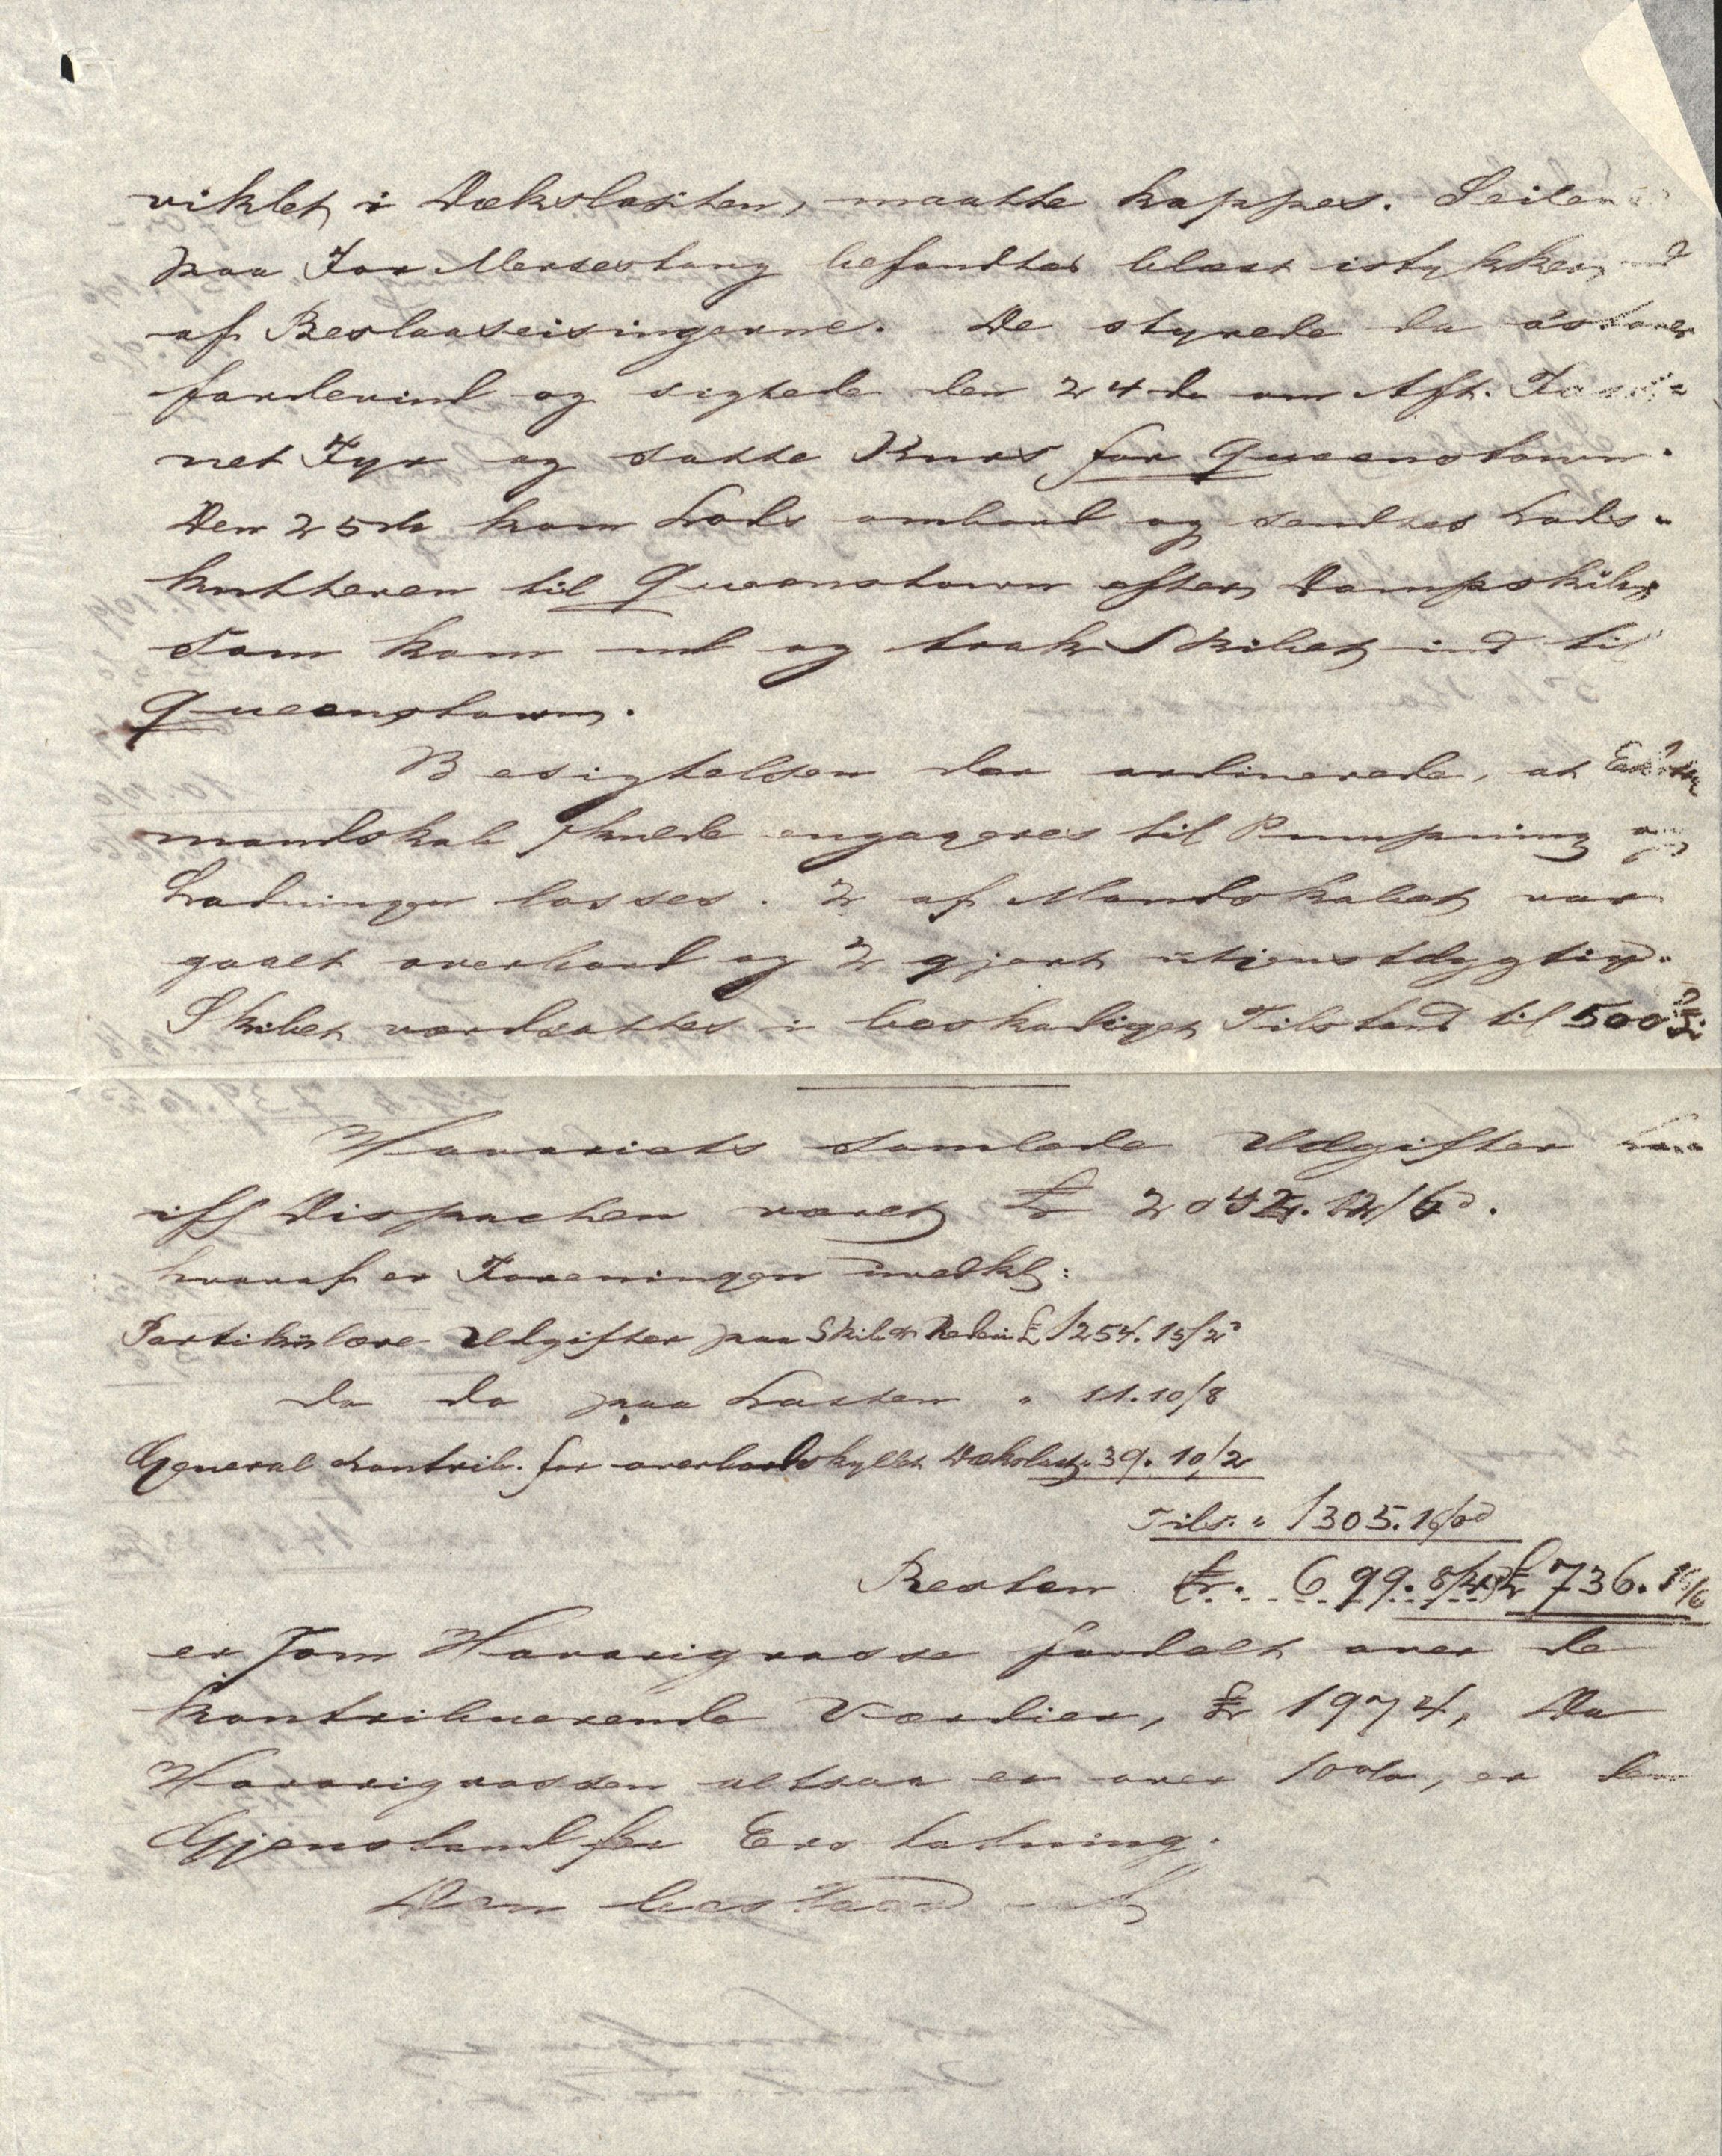 viklet i Dækslasten, maatte kappes. Seilene
paa For Mersestang befandtes blæst istykker, ud
af Beslaaseisingerne. De styrede da østover
fordevind og sigtede den 24de om Aft. Fast
net Fyr og satte Kurs for Queenstown.
Den 25de kom Lods ombord og sendtes Lods-
kutteren til Queenstown efter Dampskib,
som kom ud og trak Skibet ind til
Queenstown.
Besigtelsen der ordinerede, at Extra
mandskab skulde engageres til Pumpning og
Ladningen losses. 2 af Mandskabet var
gaaet overbord og 2 gjort utjenstdygtig.
Skibet værdsattes i beskadiget Tilstand til 500 £
Havariets samlede Udgifter har
iflg Dispachen været £ 2042. 12/6d.
hvoraf er Foreningen uvedk:
Partikulære Udgifter paa Skib & Rederi £ 1254. 15/2d
do do paa Lasten " 11. 10/8
General Kontrib. for overbordskyllet Dækslast " 39. 10/2
Tils. " 1305. 16/0d
Resten £. 699. £ 736. 16/6
er som Havarigrosse fordelt over de
kontribuerende Værdier, £ 1974, Da
Havarigrossen altsaa er over 10 %, er den
Gjenstand for Erstatning.
Den bestaar